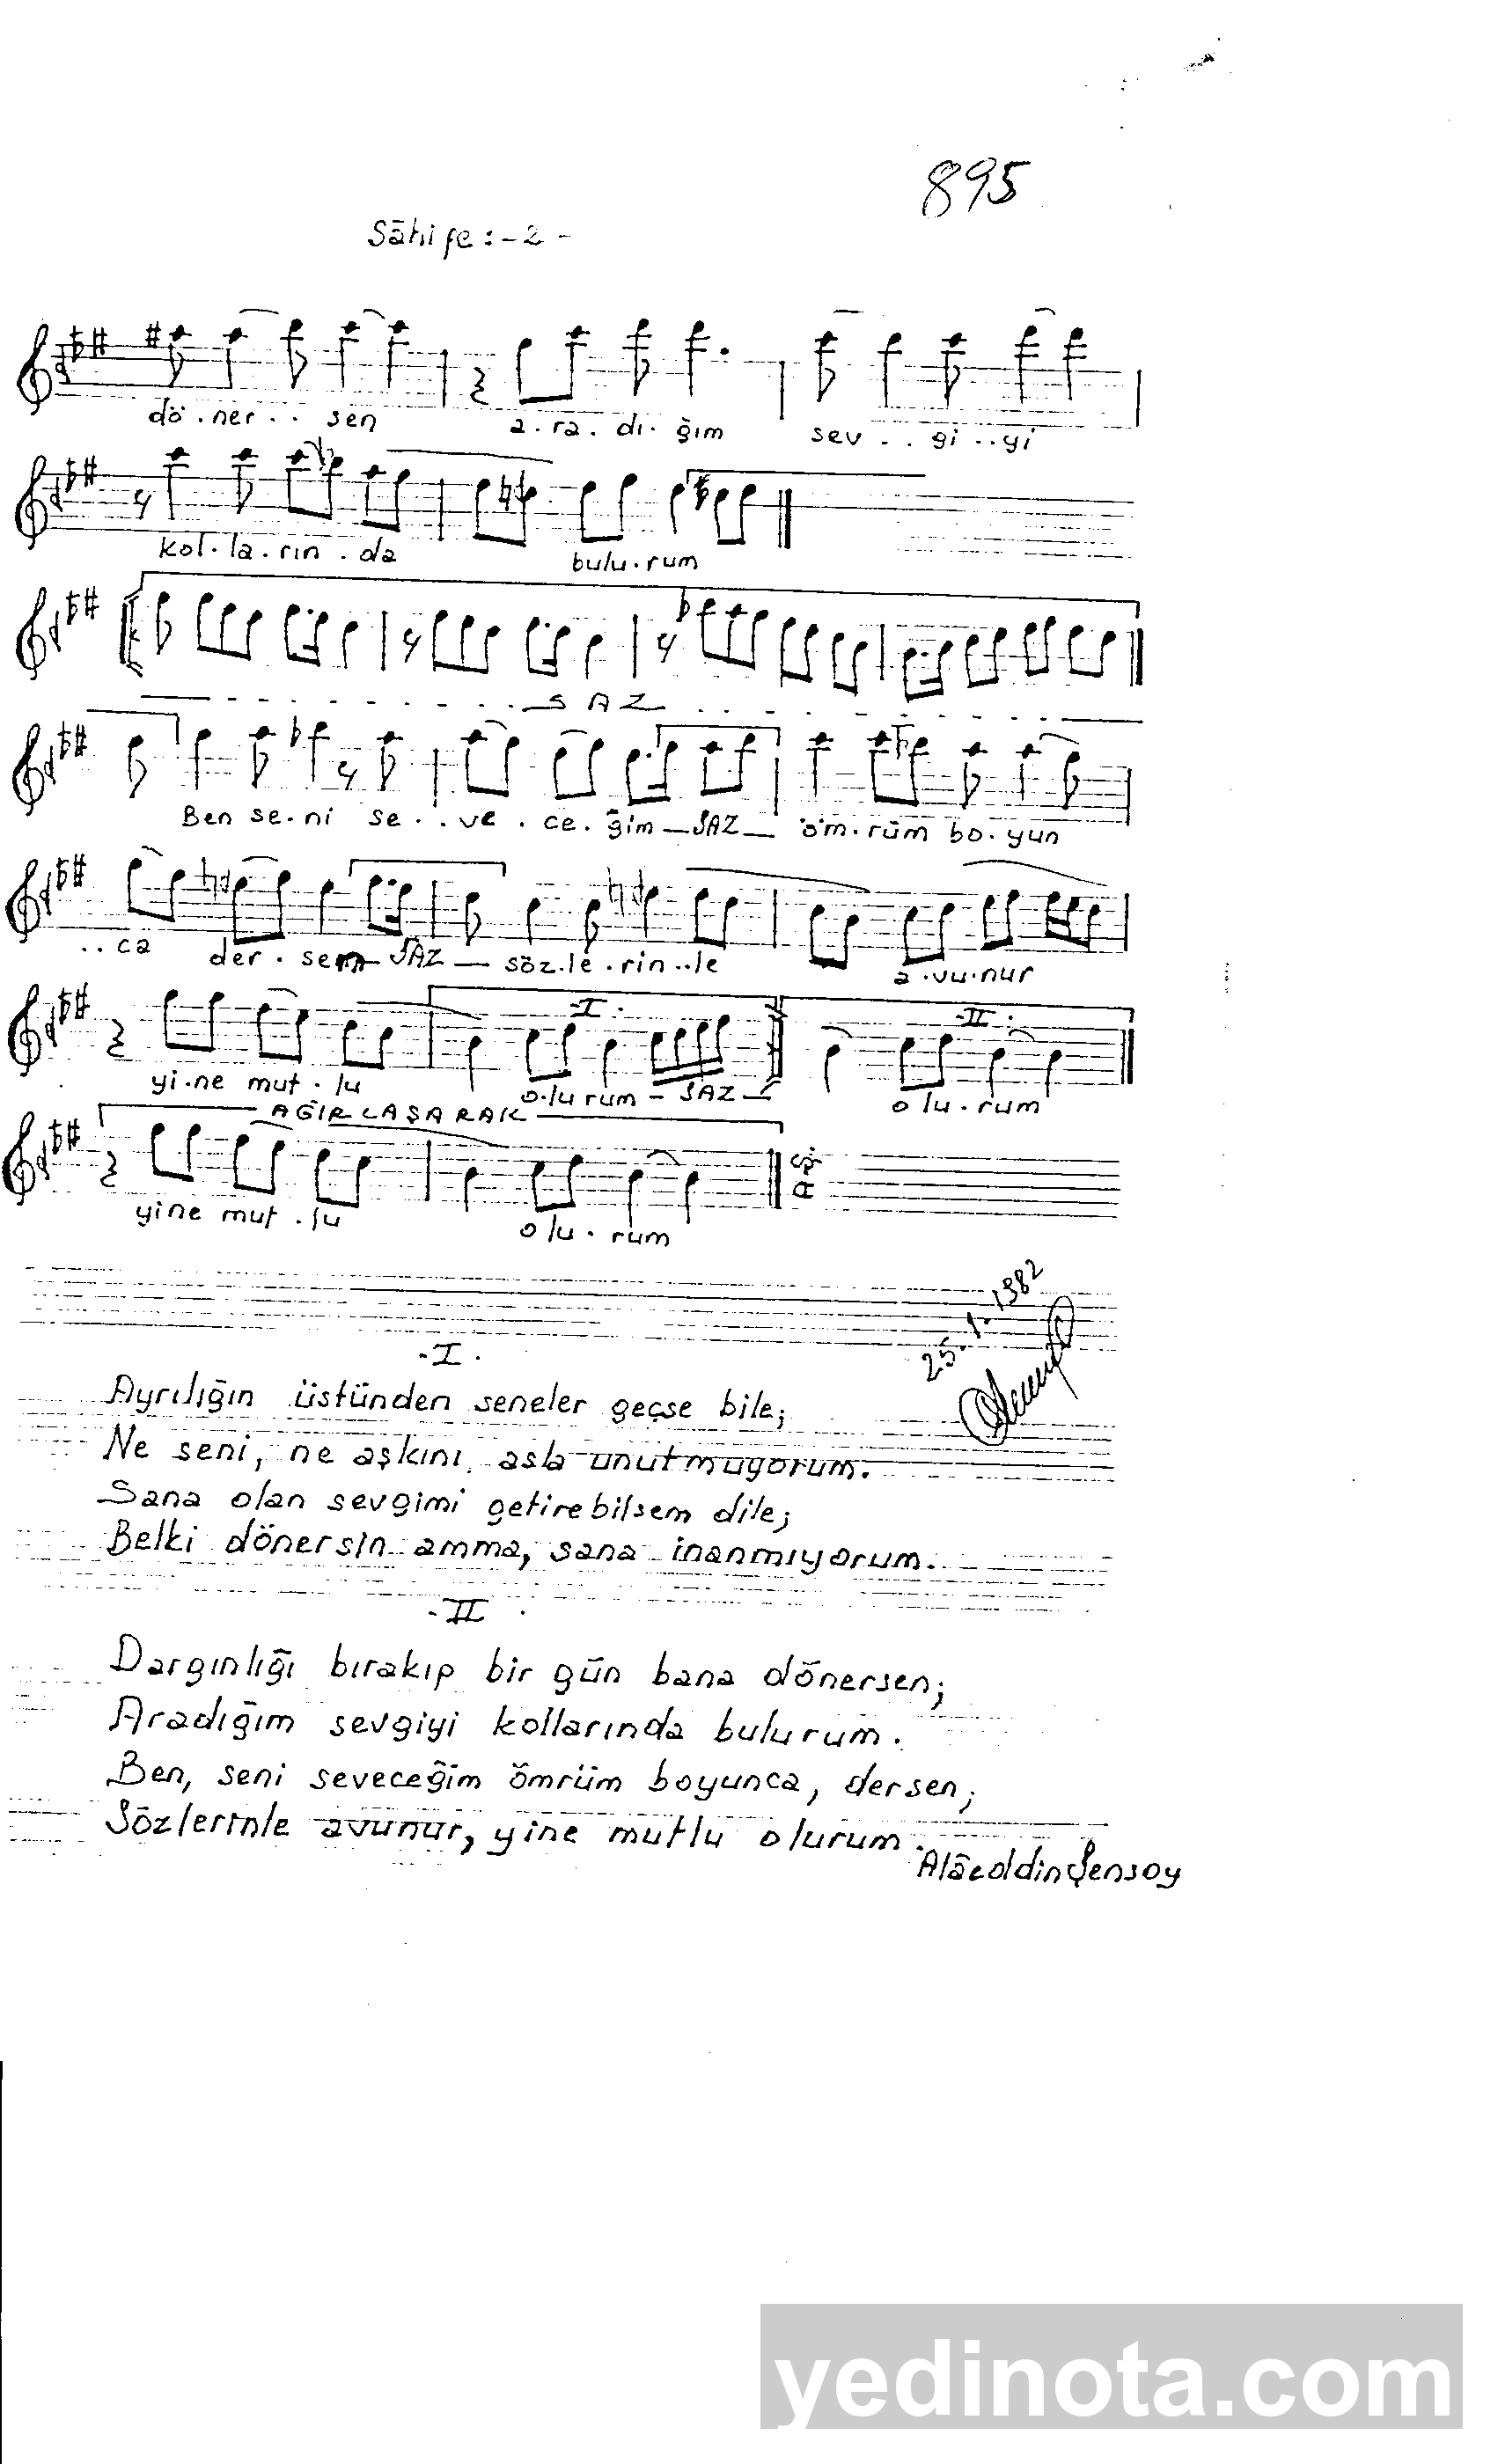 895
Sāhife : - 2 -
dö . ner . . sen a . ra . dı . ğım sev . . gi . . yi
kol . la . rın . da bulu . rum
SAZ
Ben se . ni se . . ve . ce . ğim — SAZ — öm . rüm bo . yun
. . ca der . sem — SAZ — söz . le . rin . . le a . vu . nur
yi . ne mut . lu - I . o . lu rum — SAZ — - II . o lu . rum
AĞIRLAŞARAK
yi ne mut . lu o lu . rum
25 . 1 . 1982
- I .
Ayrılığın üstünden seneler geçse bile;
Ne seni, ne aşkını, asla unutmuyorum.
Sana olan sevgimi getirebilsem dile;
Belki dönersin amma, sana inanmıyorum.
- II .
Dargınlığı bırakıp bir gün bana dönersen;
Aradığım sevgiyi kollarında bulurum.
Ben, seni seveceğim ömrüm boyunca, dersen;
Sözlerinle avunur, yine mutlu olurum.
Alâeddin Şensoy
yedinota.com